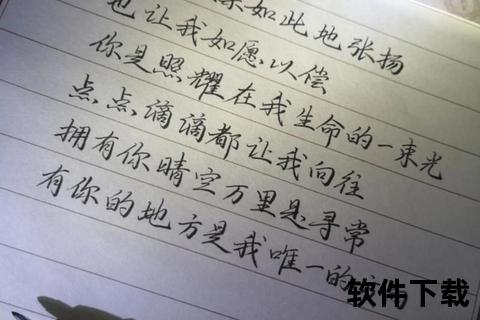 如此地张扬
也让我如愿以偿
你是照耀在我生命的一束光
点点滴滴都让我向往
拥有你晴空万里是寻常
有你的地方是我唯一的
软件下载